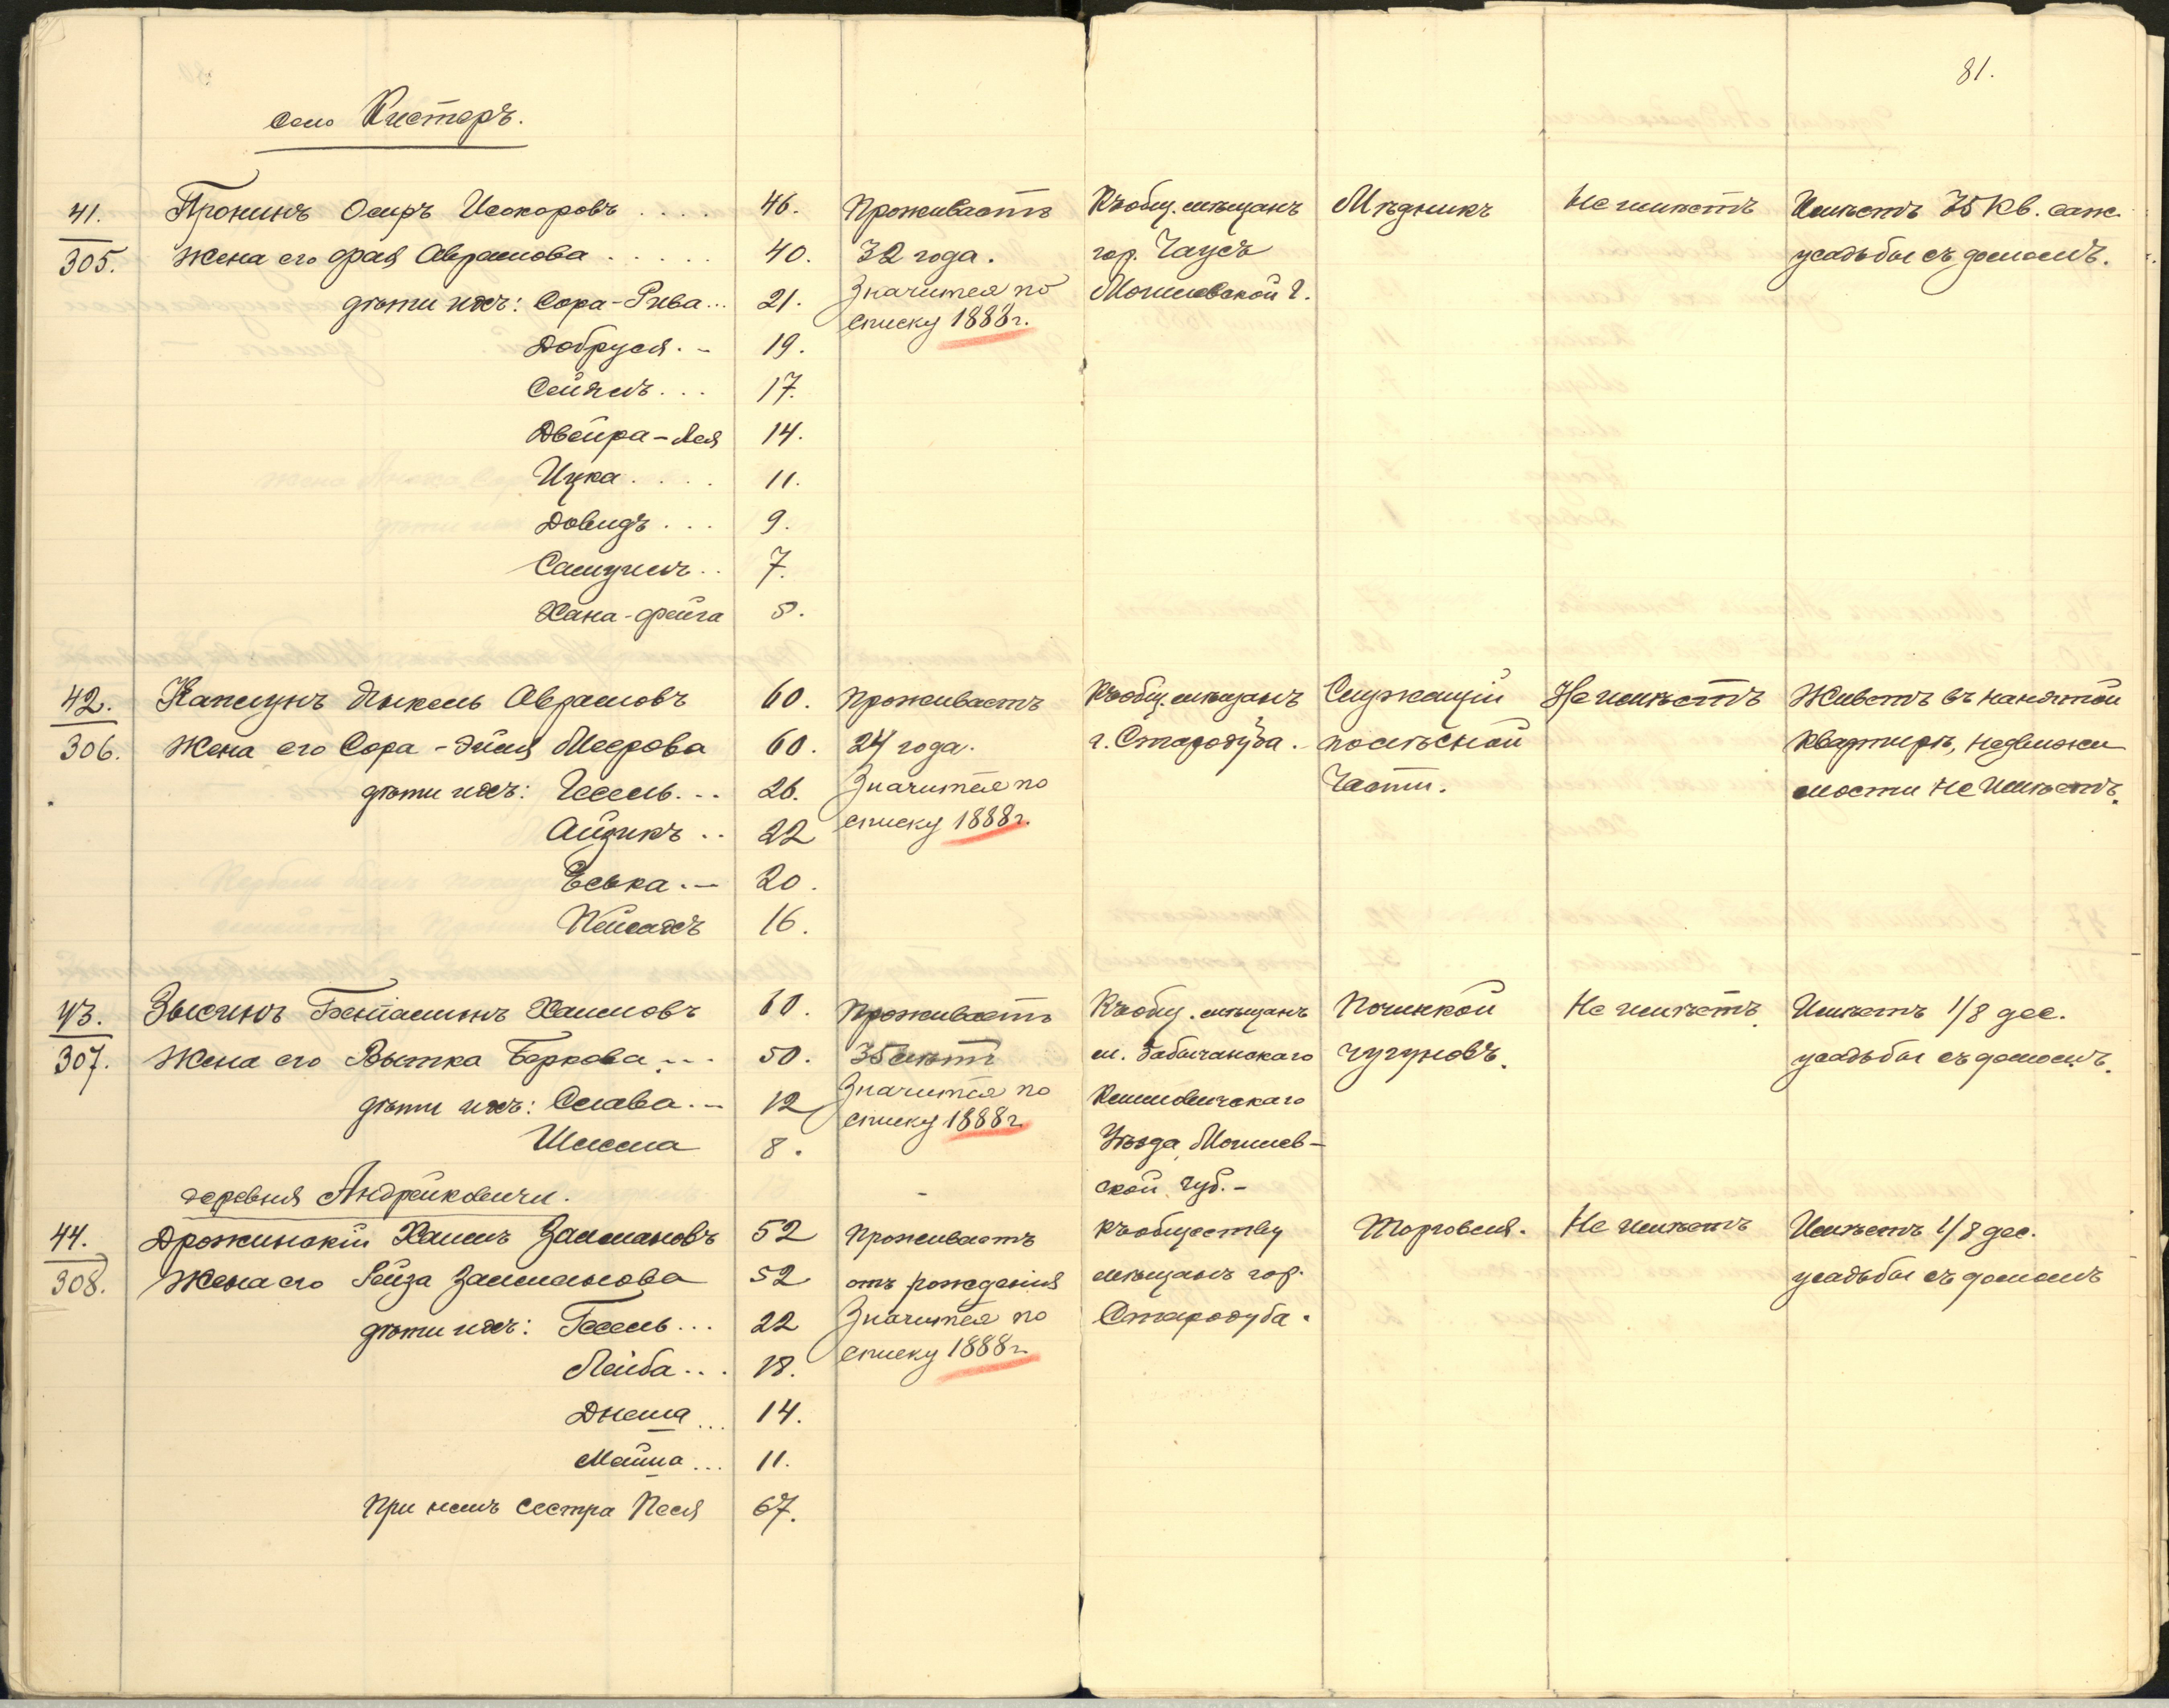 81.
село Кистеръ.
41. Пронинъ Осиръ Исокоровъ .... 46. Проживаетъ Къ общ. мѣщанъ Мѣдникъ Не имѣетъ Имѣетъ 75 кв. саж.
305. Жена его Фрая Абрамова ..... 40. 32 года. гор. Чаусъ усадьбы съ домомъ.
дѣти ихъ: Сора-Рива... 21. Значится по Могилевской г.
Добруся. - 19. списку 1888г.
17.
Двейра-Лея 14.
Ицка .... 11.
Довидъ ... 9.
Самуилъ .. 7.
Хана-Фейга 5.
42. Каплунъ Янкель Абрамовъ 60. Проживаетъ Къ общ. мѣщанъ Служащій Не имѣетъ Живетъ въ нанятой
306. Жена его Сора-Эйля Меерова 60. 24 года. г. Стародуба. по лѣсной квартирѣ, недвижи
дѣти ихъ: Гесель. -- 26. Значится по части. мости не имѣетъ.
Айзикъ .. 22 списку 1888г.
Еська. - 20.
Пейсахъ 16.
43. Зысинъ Беніаминъ Хаимовъ 60. Проживаетъ Къ общ. мѣщанъ Починкой Не имѣетъ. Имѣетъ 1/8 дес.
307. Жена его Рытка Беркова. -- 50. 35 лѣтъ м. Забычанскаго чугуновъ. усадьбы съ домомъ.
дѣти ихъ: Слава. - 12 Значится по Климовичскаго
Шлема 8. списку 1888г. Уѣзда, Могилев-
деревня Андрейковичи. - ской губ. -
44. Дрожинскій Хаимъ Залмановъ 52 Проживаетъ Къ обществу Торговля. Не имѣетъ Имѣетъ 1/8 дес.
308. Жена его Рейза Залманова 52 отъ рожденія мѣщанъ гор. усадьбы съ домомъ
дѣти ихъ: Гесель ... 22 Значится по Стародуба.
Лейба ... 18. списку 1888г.
Днеша ... 14.
11.
При немъ сестра Песя 67.